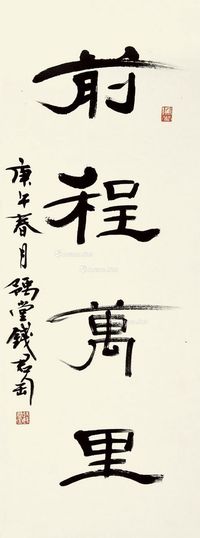 前程萬里
庚午春月豫堂錢君匋